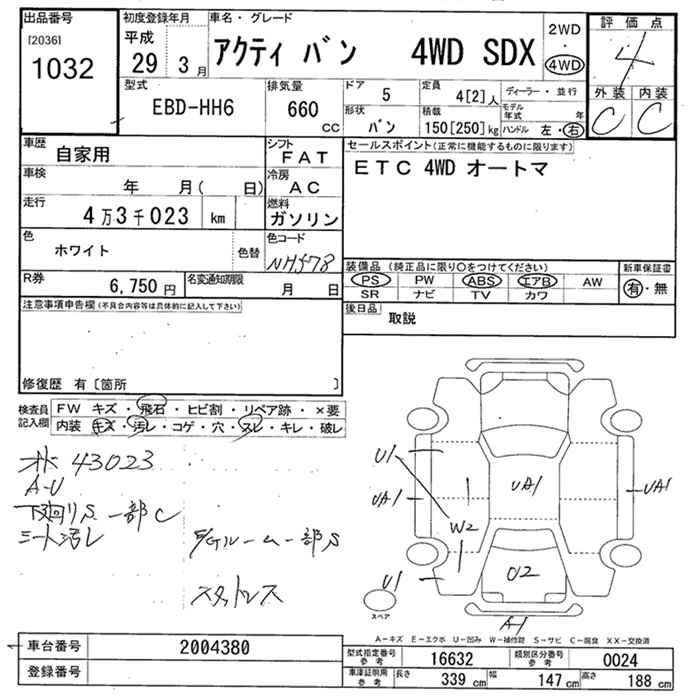 出品番号
[2036]
1032
初度登録年月
平成
29年 3月
車名・グレード
アクティ バン 4WD SDX
2WD
・
4WD
評価点
4
外装 内装
C C
型式
EBD-HH6
排気量
660
cc
ドア
5
定員
4[2]人
ディーラー・並行
形状
バン
積載
150[250]kg
モデル年式 年
ハンドル 左・右
車歴
自家用
シフト
FAT
車検
年 月( 日)
冷房
AC
走行
4万3千023 km
燃料
ガソリン
色
ホワイト
色替
色コード
NH578
R券
6,750円
名変通知期限
月 日
セールスポイント(正常に機能するものに限ります)
ETC 4WD オートマ
装備品 (純正品に限り○をつけてください)
PS PW ABS エアB AW
SR ナビ TV カワ
新車保証書
有・無
後日品
取説
注意事項申告欄(不具合内容等は具体的に記入して下さい)
修復歴 有〔箇所 〕
検査員
記入欄
FW キズ・飛石・ヒビ割・リペア跡・×要
内装 キズ・汚レ・コゲ・穴・スレ・キレ・破レ
43023
A-U
下廻りS 一部C
シート汚レ
ルーム一部S
スタットレス
U1
UA1
W2
U1
UA1
U2
UA1
A-1
スペア
A-キズ E-エクボ U-凹み W-補修跡 S-サビ C-腐食 XX-交換済
車台番号
2004380
登録番号
型式指定番号
参考
16632
類別区分番号
参考
0024
車庫証明用
参考
長さ 339 cm
幅 147 cm
高さ 188 cm